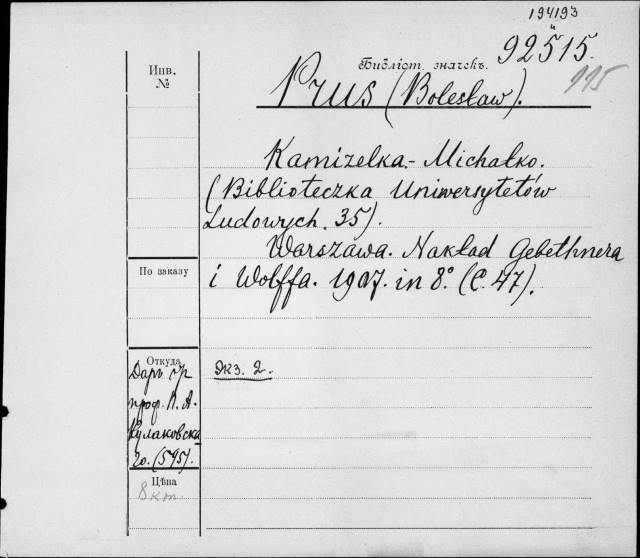 194193
Инв.
№
Библіот. значекъ.
92515.
115
Prus (Bolesław).
Kamizelka.- Michałko.
(Biblioteczka Uniwersytetów
Ludowych. 35).
Warszawa. Nakład Gebethnera
i Wolffa. 1907. in 8°. (С. 47).
По заказу
Откуда
Даръ бр
проф. П. А.
Кулаковска
го. (595).
Экз. 2.
Цѣна
8 коп.